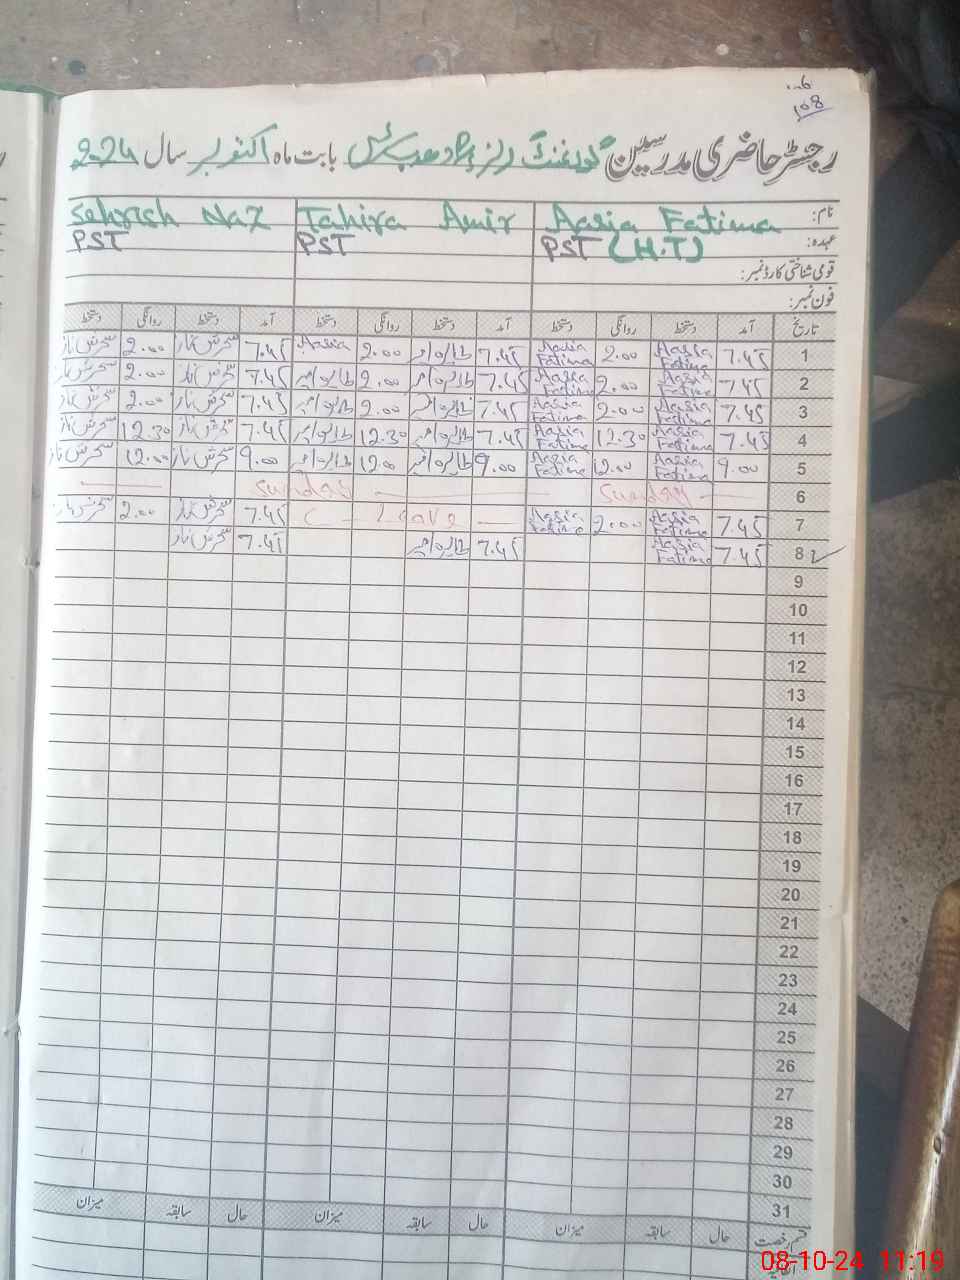 108
رجسٹر حاضری مدرسین گورنمنٹ گرلز بابت ماہ اکتوبر سال 2024
نام: Aasia Fatima Tahira Amir Sehrish Naz
عہدہ: PST (H.T) PST PST
قومی شناختی کارڈ نمبر:
فون نمبر:
تاریخ آمد دستخط روانگی دستخط آمد دستخط روانگی دستخط آمد دستخط روانگی دستخط
1 7.45 Aasia Fatima 2.00 Aasia Fatima 7.45 طاہرہ امیر 2.00 Aasia 7.45 سحرش ناز 2.00 سحرش ناز
2 7.45 Aasia Fatima 2.00 Aasia Fatima 7.45 طاہرہ امیر 2.00 طاہرہ امیر 7.45 سحرش ناز 2.00 سحرش ناز
3 7.45 Aasia Fatima 2.00 Aasia Fatima 7.45 طاہرہ امیر 2.00 طاہرہ امیر 7.45 سحرش ناز 2.00 سحرش ناز
4 7.45 Aasia Fatima 12.30 Aasia Fatima 7.45 طاہرہ امیر 12.30 طاہرہ امیر 7.45 سحرش ناز 12.30 سحرش ناز
5 9.00 Aasia Fatima 12.00 Aasia Fatima 9.00 طاہرہ امیر 12.00 طاہرہ امیر 9.00 سحرش ناز 12.00 سحرش ناز
6 Sunday Sunday
7 7.45 Aasia Fatima 2.00 Aasia Fatima C - Leave 7.45 سحرش ناز 2.00 سحرش ناز
8 7.45 Aasia Fatima 7.45 طاہرہ امیر 7.45 سحرش ناز
9
10
11
12
13
14
15
16
17
18
19
20
21
22
23
24
25
26
27
28
29
30
31
قسم رخصت حال سابقہ میزان حال سابقہ میزان حال سابقہ میزان
اتفاقیہ
08-10-24 11:19